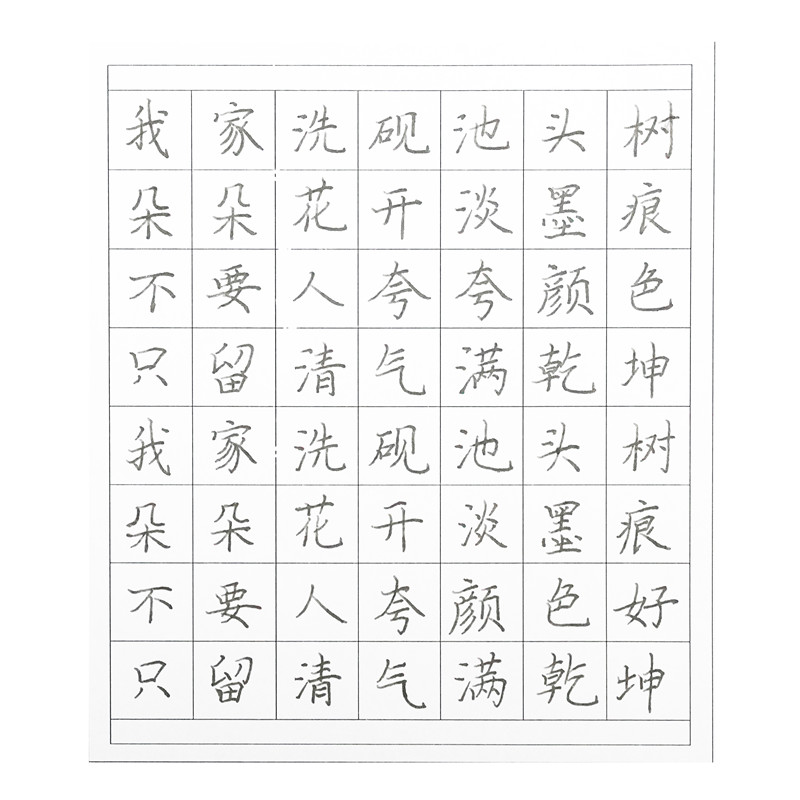 我家洗砚池头树
朵朵花开淡墨痕
不要人夸夸颜色
只留清气满乾坤
我家洗砚池头树
朵朵花开淡墨痕
不要人夸颜色好
只留清气满乾坤